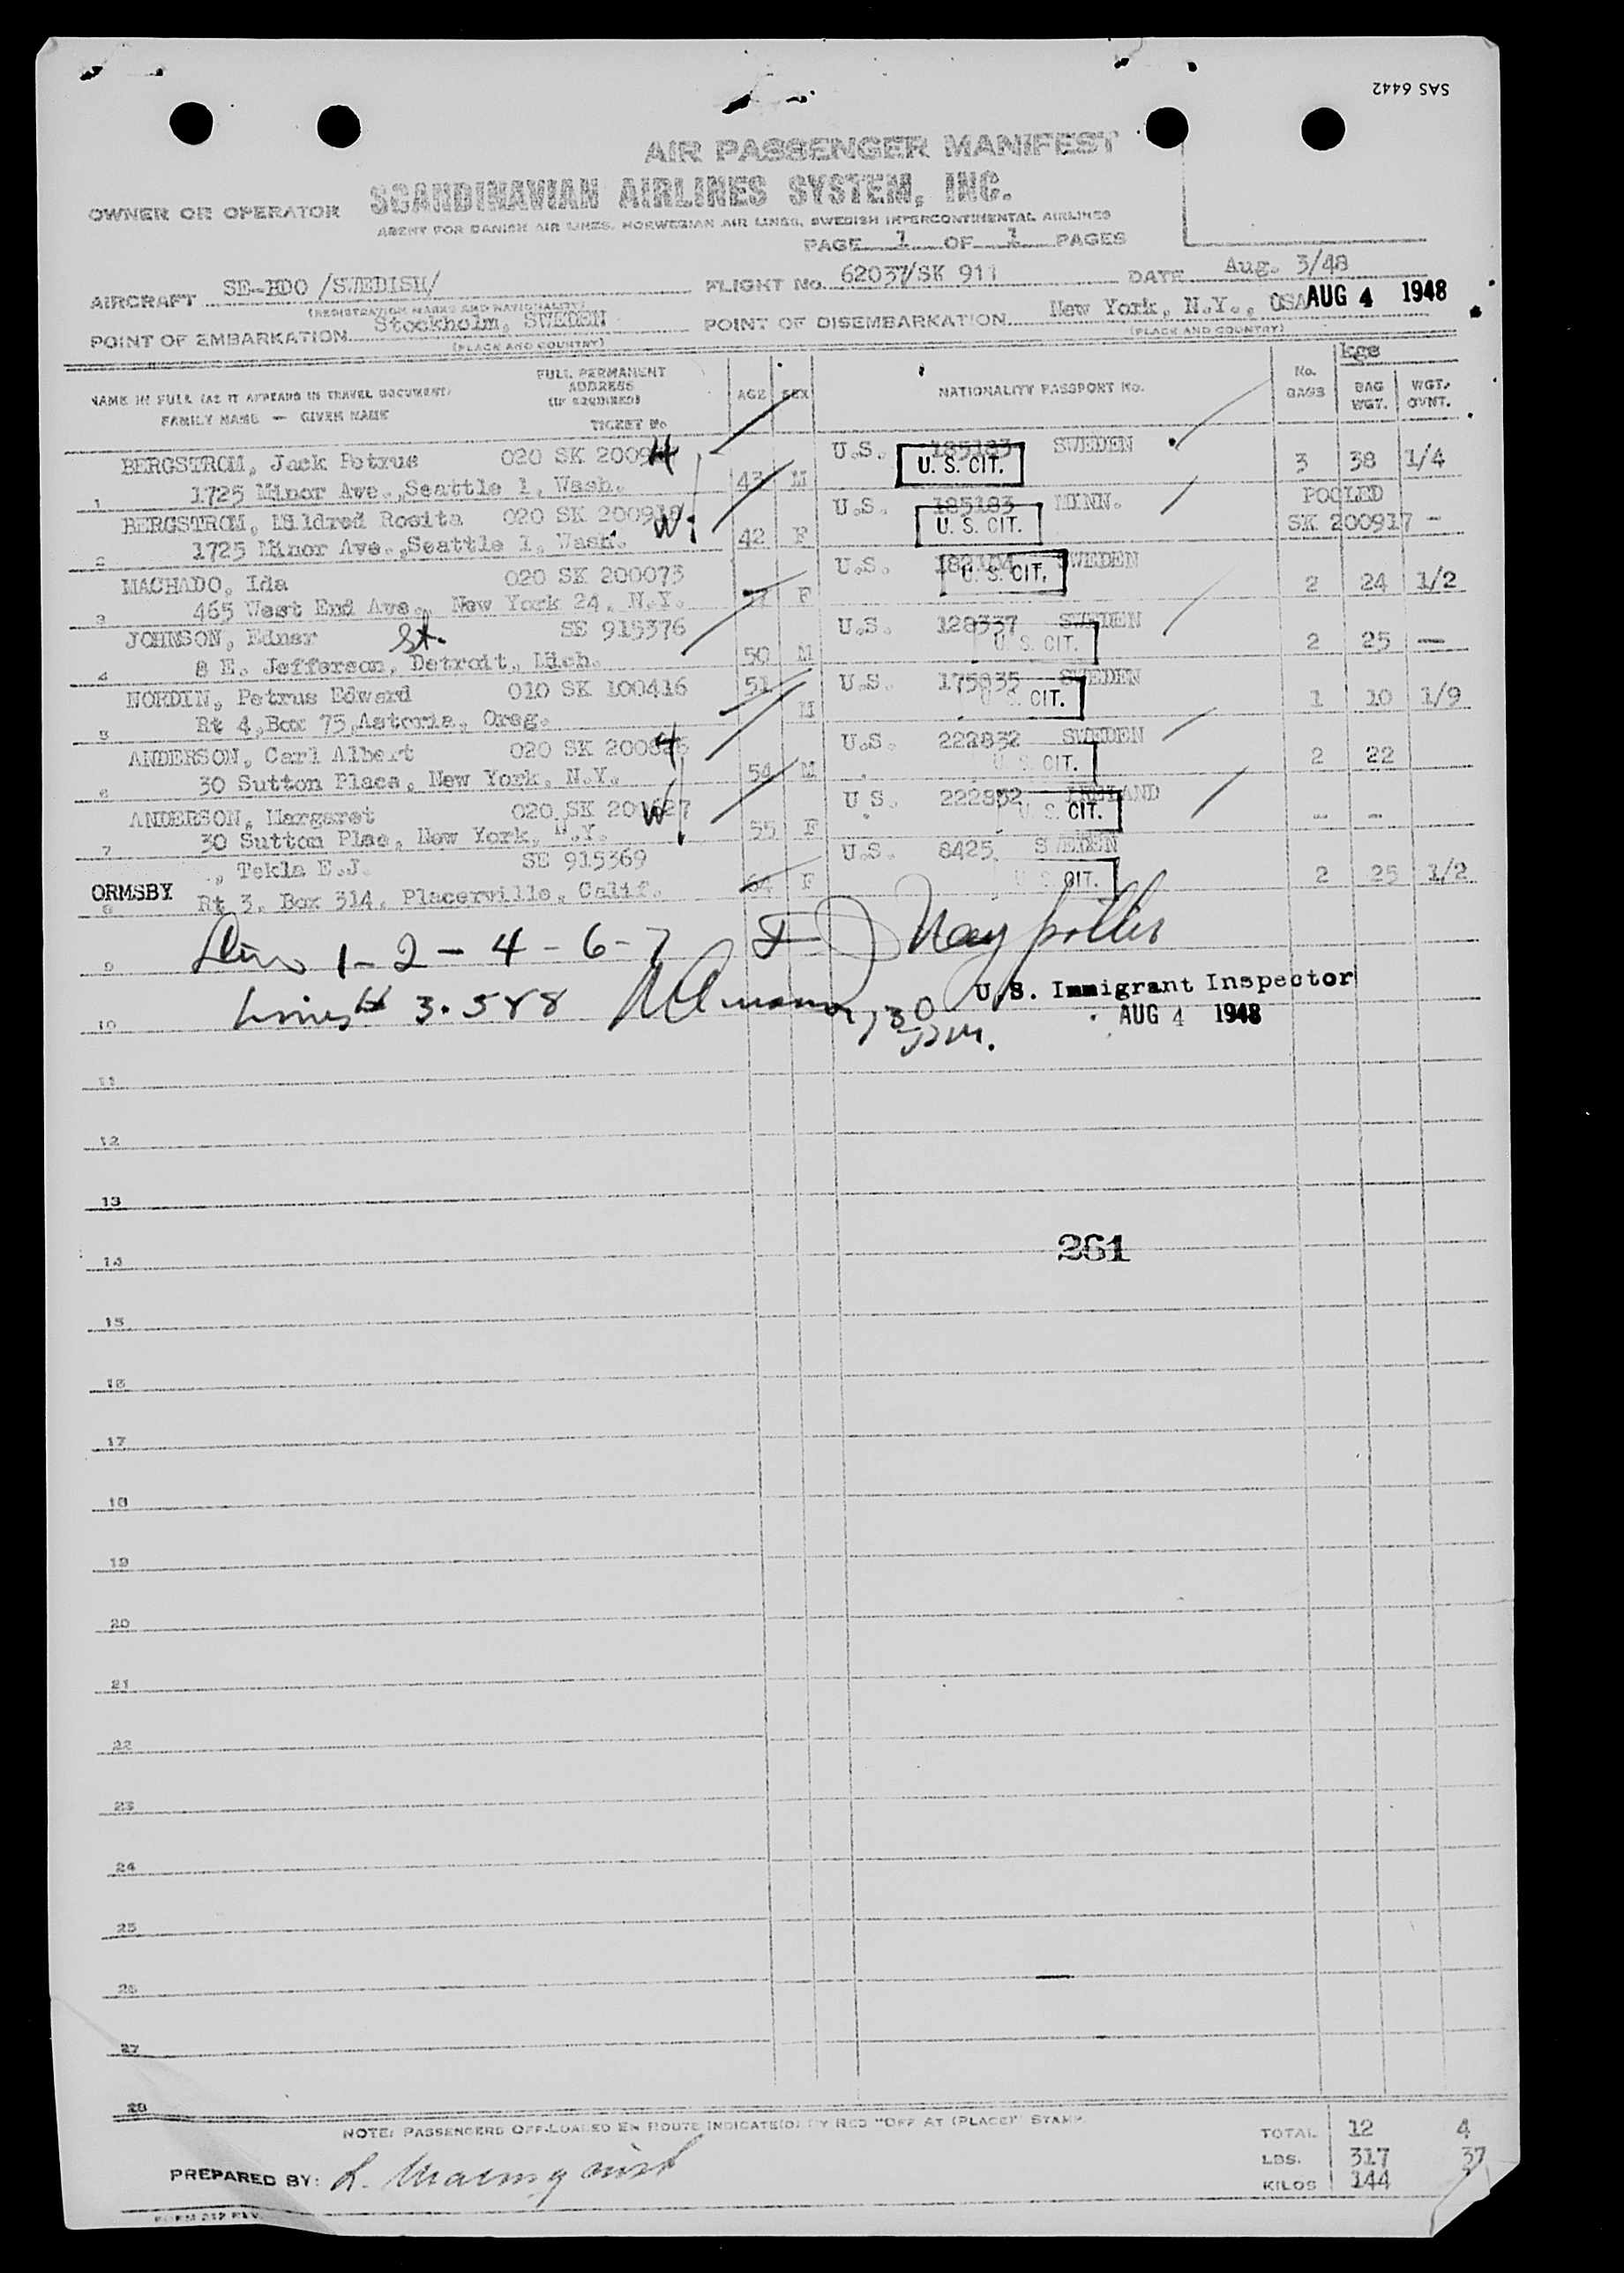 SAS 6442
AIR PASSENGER MANIFEST
OWNER OR OPERATOR SCANDINAVIAN AIRLINES SYSTEM, INC.
AGENT FOR DANISH AIR LINES, NORWEGIAN AIR LINES, SWEDISH INTERCONTINENTAL AIRLINES
PAGE 1 OF 1 PAGES
AIRCRAFT SE-BDO /SWEDISH/ FLIGHT No. 62037/SK 911 DATE Aug. 3/48
(REGISTRATION MARKS AND NATIONALITY)
POINT OF EMBARKATION Stockholm, SWEDEN POINT OF DISEMBARKATION New York, N.Y., USA AUG 4 1948
(PLACE AND COUNTRY) (PLACE AND COUNTRY)
kgs
NAME IN FULL (AS IT APPEARS IN TRAVEL DOCUMENT) FULL PERMANENT ADDRESS (IF REQUIRED) AGE SEX NATIONALITY PASSPORT No. No. BAGS BAG WGT. WGT. OVNT.
FAMILY NAME — GIVEN NAME TICKET No
BERGSTROM, Jack Petrus 020 SK H U.S. 185183 SWEDEN
1 1725 Minor Ave., Seattle 1, Wash. 43 M U. S. CIT. 3 38 1/4
BERGSTROM, Mildred Rosita 020 SK W U.S. 185183 MINN. POOLED
2 1725 Minor Ave., Seattle 1, Wash. 42 F U. S. CIT. SK 200917 -
MACHADO, Ida 020 SK 200073 U.S. SWEDEN
3 465 West End Ave., New York 24, N.Y. F U. S. CIT. 2 24 1/2
JOHNSON, Edner St. SE 915376 U.S. 128337 SWEDEN
4 8 E. Jefferson, Detroit, Mich. 50 M U. S. CIT. 2 25 —
NORDIN, Petrus Edward 010 SK 100416 51 U.S. 175835 SWEDEN
5 Rt 4, Box 75, Astoria, Oreg. M U. S. CIT. 1 10 1/9
ANDERSON, Carl Albert 020 SK H U.S. 222832 SWEDEN
6 30 Sutton Place, New York, N.Y. 54 M U. S. CIT. 2 22
ANDERSON, Margaret 020 SK W U.S. 222832 IRELAND
7 30 Sutton Plac, New York, N.Y. 55 F U. S. CIT. - -
ORMSBY, Tekla E.J. SE 915369 U.S. 8425 SWEDEN
8 Rt 3, Box 314, Placerville, Calif. 64 F U. S. CIT. 2 25 1/2
9 1-2-4-6-7
10 3.5 & 8 U.S. Immigrant Inspector
AUG 4 1948
11
12
13
14 261
15
16
17
18
19
20
21
22
23
24
25
26
27
28
NOTE: PASSENGERS OFF-LOADED EN ROUTE INDICATE(D) BY RED "OFF AT (PLACE)" STAMP.
TOTAL 12 4
LBS. 317 37
PREPARED BY: KILOS 144
FORM 212 REV.